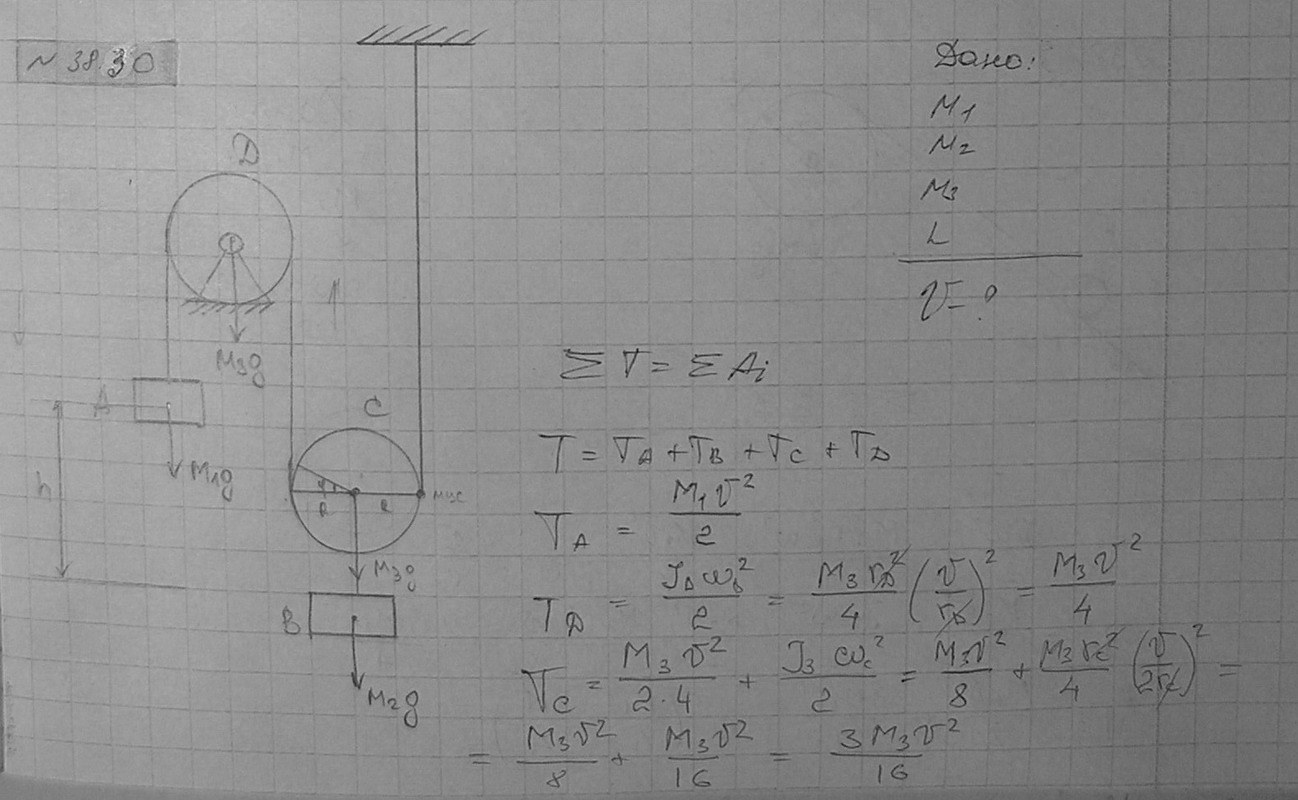 N 38.30
Дано:
M₁
M₂
M₃
L
V = ?
D
M₃g
A
M₁g
h
C
φ
R
R
МЦС
M₃g
B
M₂g
Σ T = Σ Aᵢ
T = T_A + T_B + T_C + T_D
T_A = M₁V²/2
T_D = J_D ω_D²/2 = M₃ r_D²/4 (V/r_D)² = M₃V²/4
T_C = M₃V²/(2·4) + J₃ω_C²/2 = M₃V²/8 + M₃r_C²/4 (V/2r_C)² =
= M₃V²/8 + M₃V²/16 = 3M₃V²/16